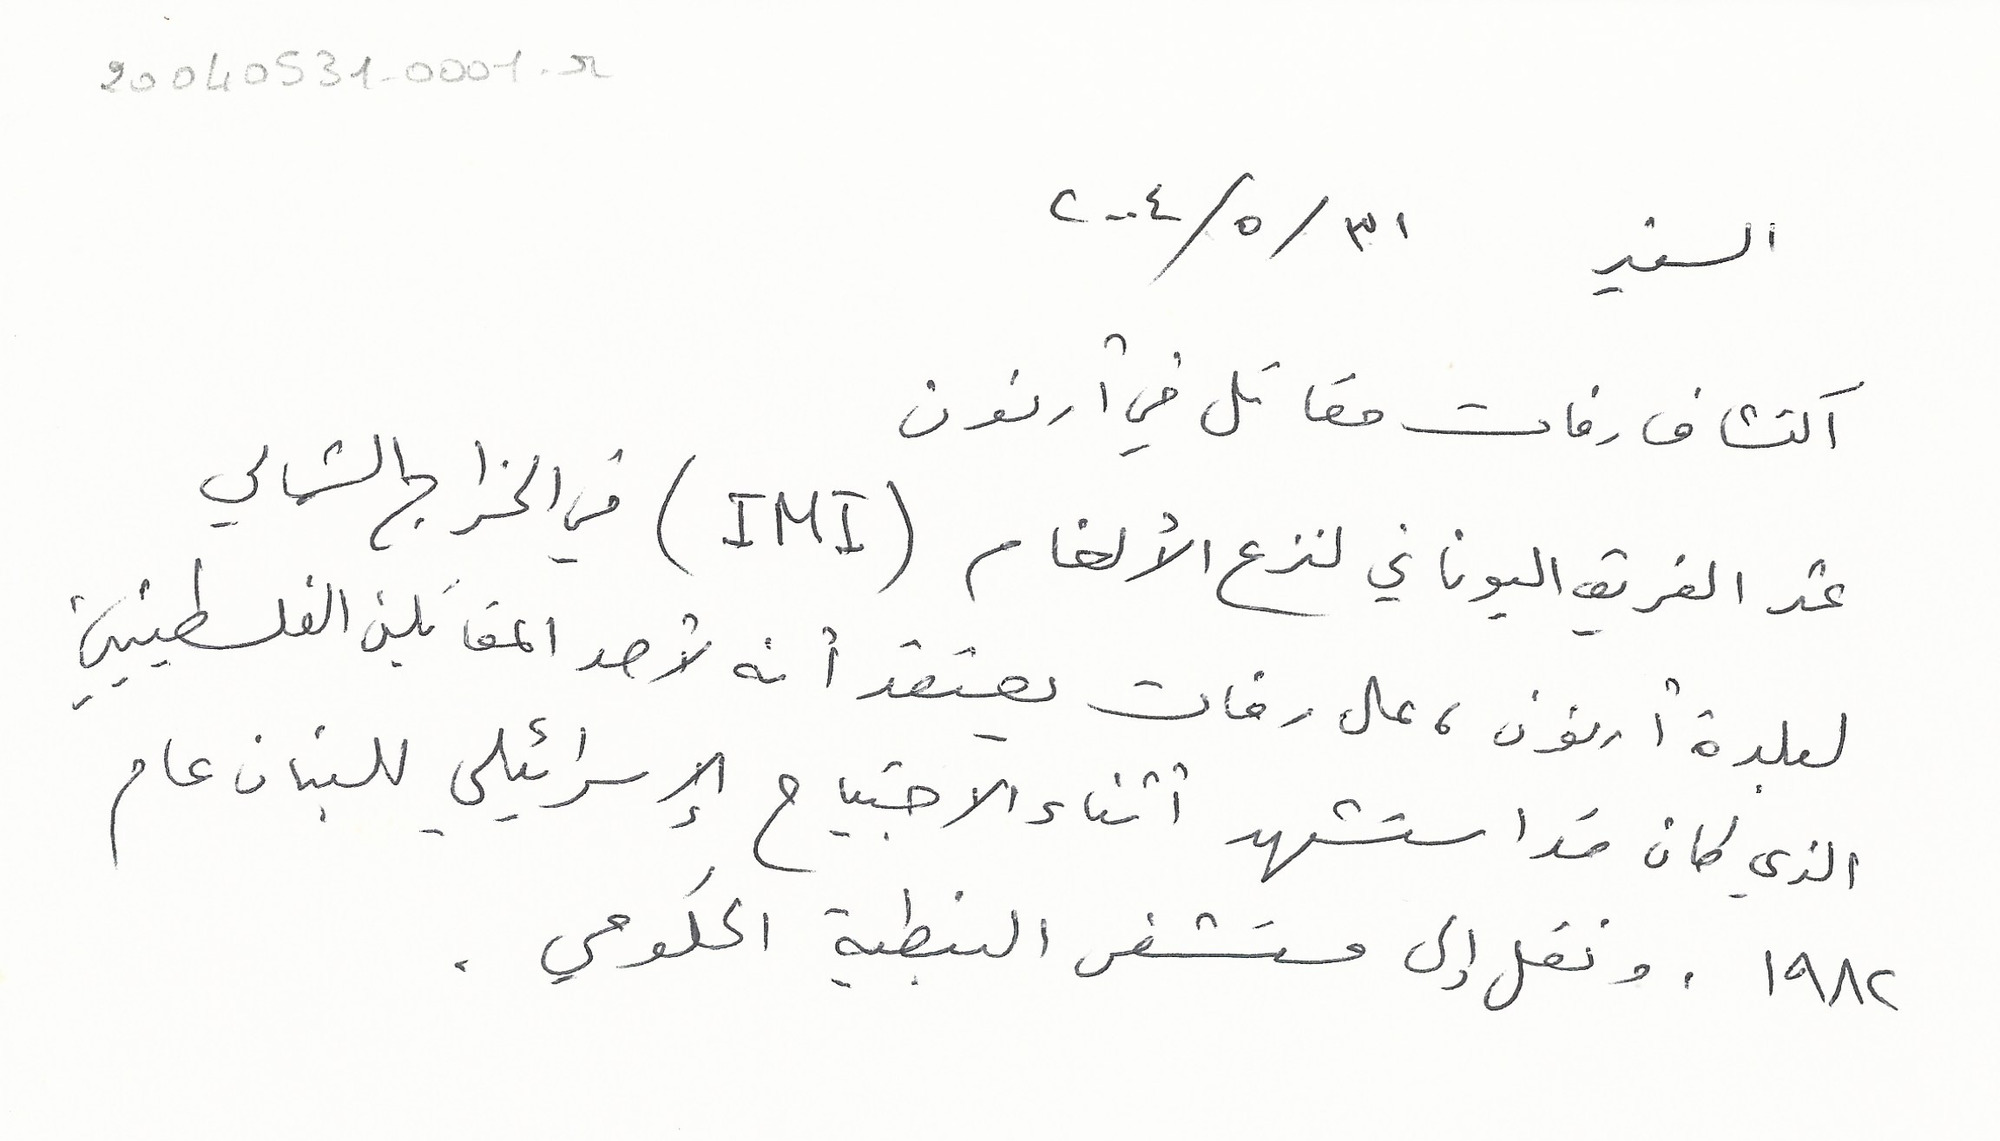 20040531-0001.
السفير ٣١/٥/٢٠٠٤
اكتشاف رفات مقاتل في أرنون
عثر الفريق اليوناني لنزع الألغام (IMI) في الخراج الشمالي
لبلدة أرنون، على رفات يعتقد أنه لأحد المقاتلين الفلسطينيين
الذي كان قد استشهد أثناء الاجتياح الإسرائيلي للبنان عام
١٩٨٢. ونقل إلى مستشفى النبطية الحكومي.